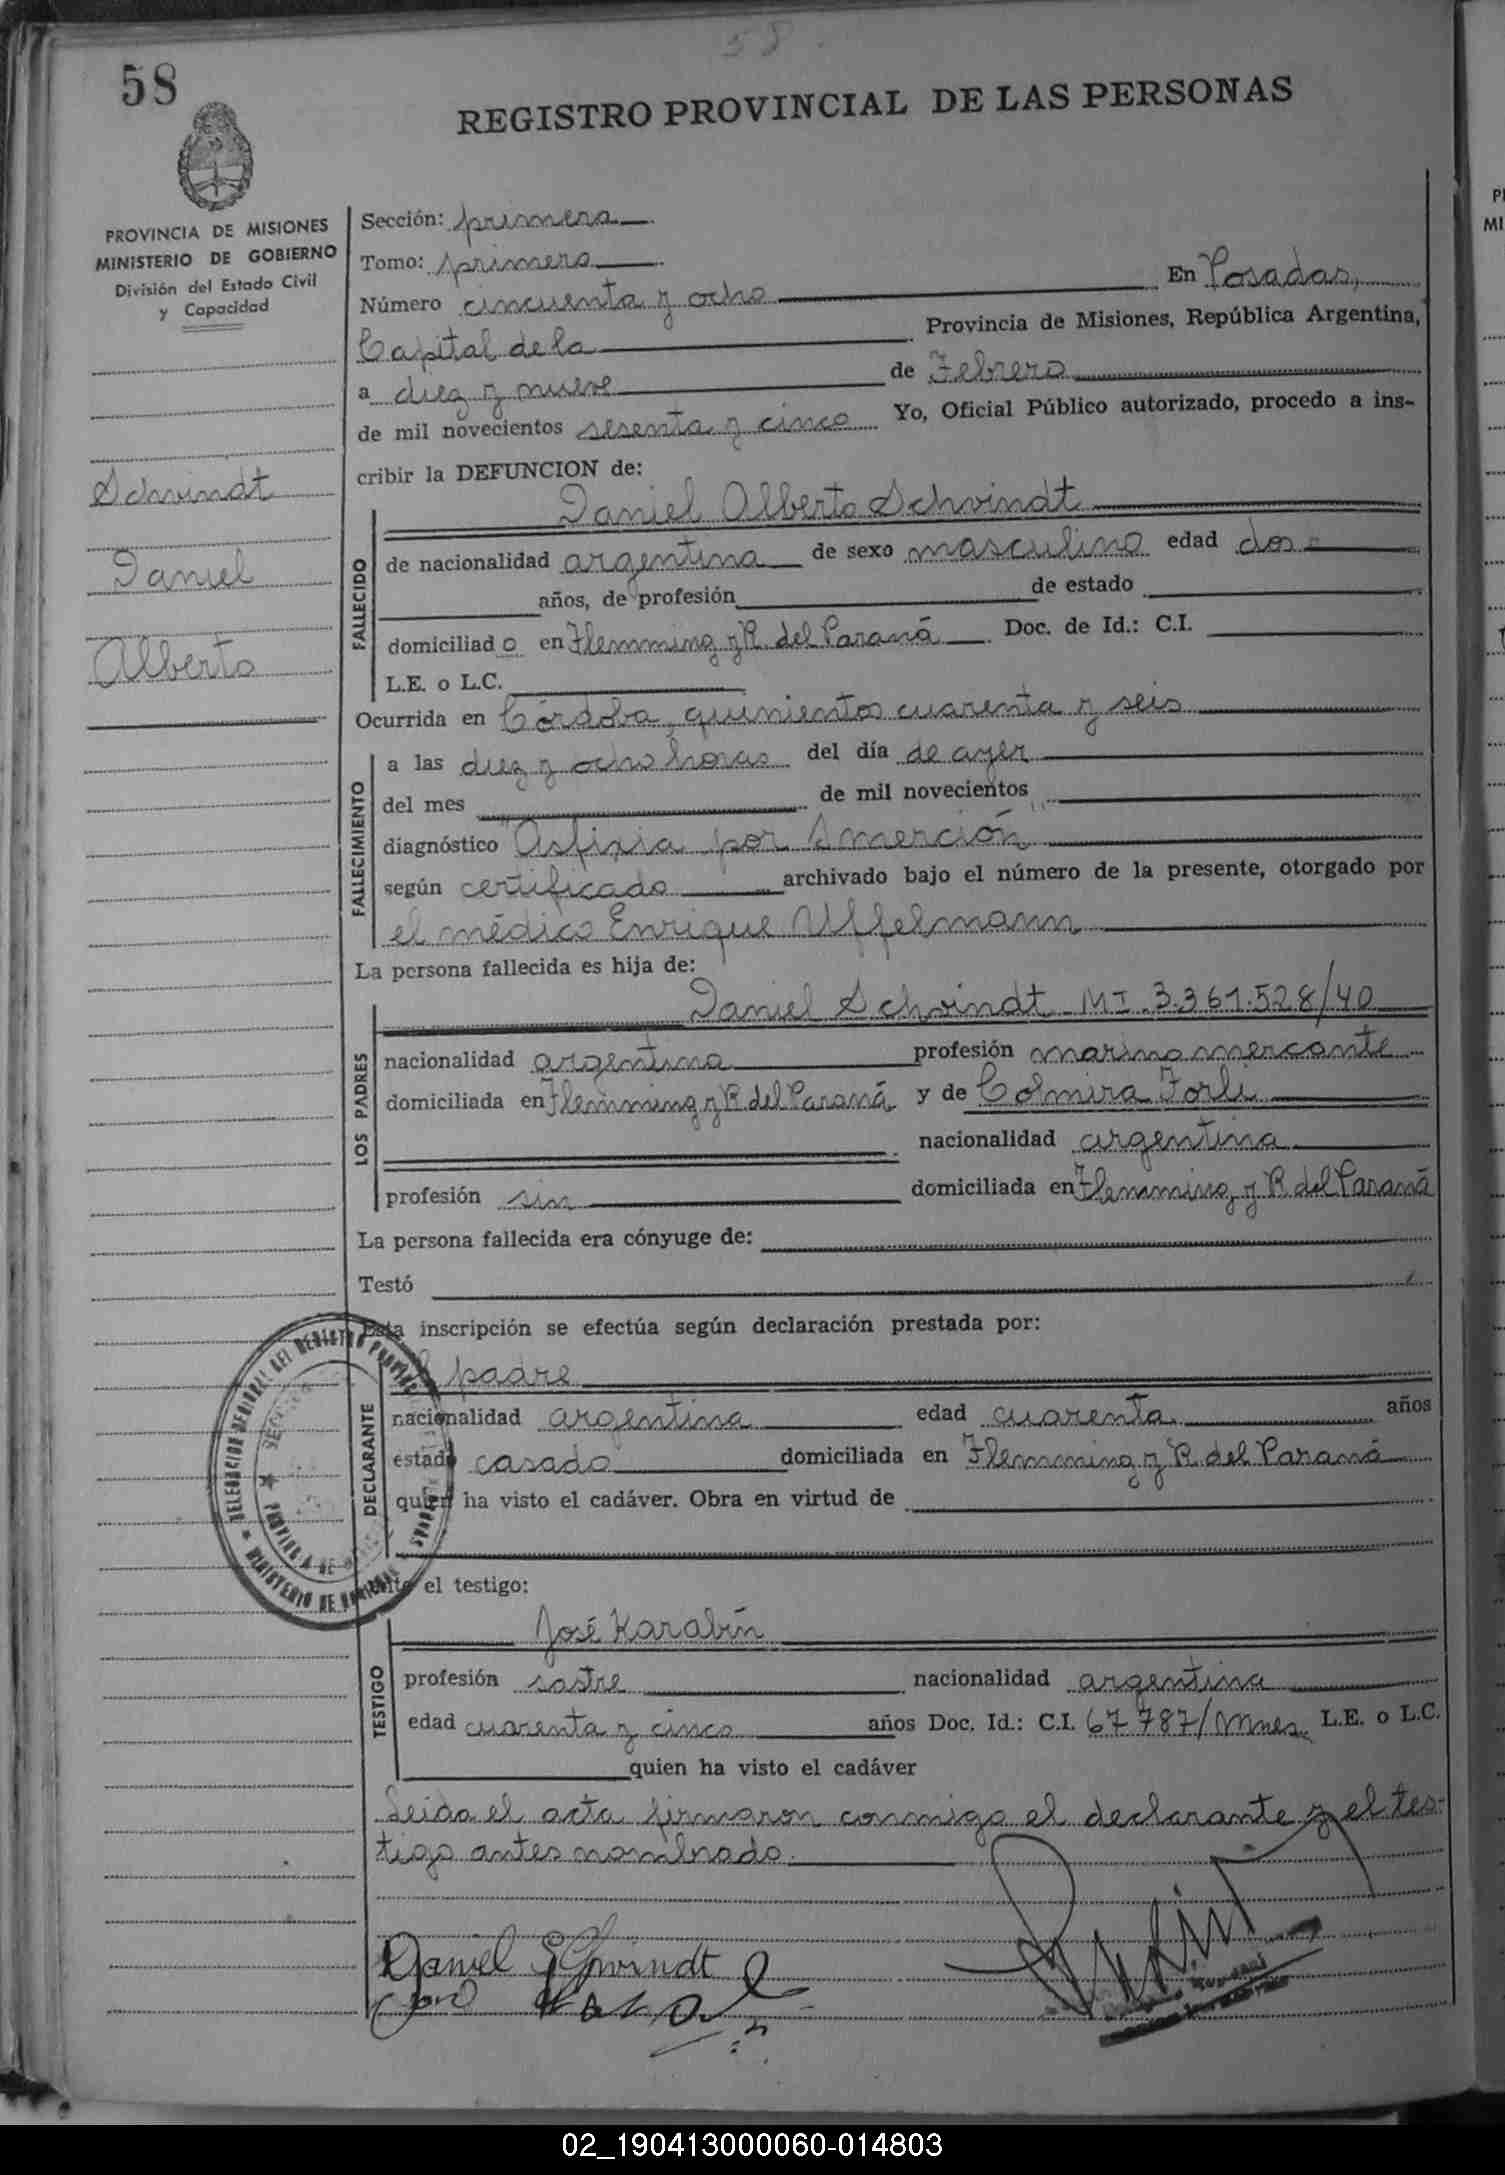 58
58
REGISTRO PROVINCIAL DE LAS PERSONAS
PROVINCIA DE MISIONES
MINISTERIO DE GOBIERNO
División del Estado Civil
y Capacidad
Schvindt
Daniel
Alberto
Sección: primera
Tomo: primero
Número cincuenta y ocho En Posadas,
Capital de la Provincia de Misiones, República Argentina,
a diez y nueve de Febrero
de mil novecientos sesenta y cinco Yo, Oficial Público autorizado, procedo a ins-
cribir la DEFUNCION de:
Daniel Alberto Schvindt
FALLECIDO
de nacionalidad argentina de sexo masculino edad dos
años, de profesión de estado
domiciliado en Flemming y R. del Paraná Doc. de Id.: C.I.
L.E. o L.C.
Ocurrida en Córdoba, quinientos cuarenta y seis
FALLECIMIENTO
a las diez y ocho horas del día de ayer
del mes de mil novecientos
diagnóstico "Asfixia por Smerción"
según certificado archivado bajo el número de la presente, otorgado por
el médico Enrique Uffelmann
La persona fallecida es hija de:
Daniel Schvindt MI. 3.361.528/40
LOS PADRES
nacionalidad argentina profesión marino mercante
domiciliada en Flemming y R. del Paraná y de Colmira Forli
nacionalidad argentina
profesión sin domiciliada en Flemming y R. del Paraná
La persona fallecida era cónyuge de:
Testó
Esta inscripción se efectúa según declaración prestada por:
el padre
DECLARANTE
nacionalidad argentina edad cuarenta años
estado casado domiciliada en Flemming y R. del Paraná
quien ha visto el cadáver. Obra en virtud de
Ante el testigo:
José Karabin
TESTIGO
profesión sastre nacionalidad argentina
edad cuarenta y cinco años Doc. Id.: C.I. 67787/Mnes. L.E. o L.C.
quien ha visto el cadáver
Leida el acta firmaron conmigo el declarante y el tes-
tigo antes nombrado.
Daniel Schvindt
02_190413000060-014803